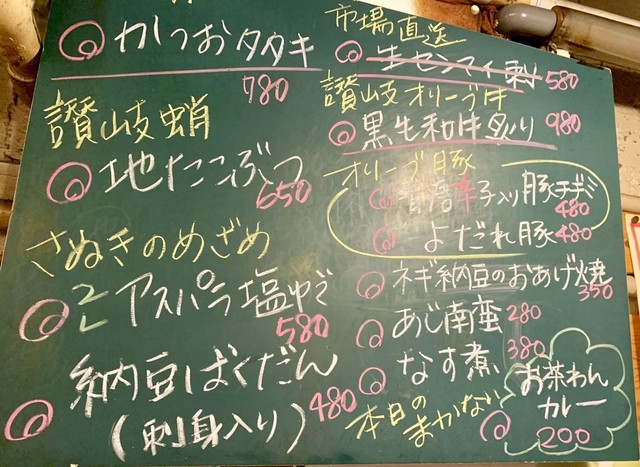 かつおタタキ
780
讃岐蛸
地たこぶつ
650
さぬきのめざめ
2L アスパラ塩ゆで
580
納豆ばくだん
(刺身入り) 480
市場直送
生センマイ刺 580
讃岐オリーブ牛
黒毛和牛炙り 980
オリーブ豚
青唐辛子入り豚チヂミ
480
よだれ豚 480
ネギ納豆のおあげ焼
350
あじ南蛮 280
なす煮 380
本日の
まかない
お茶わん
カレー
200